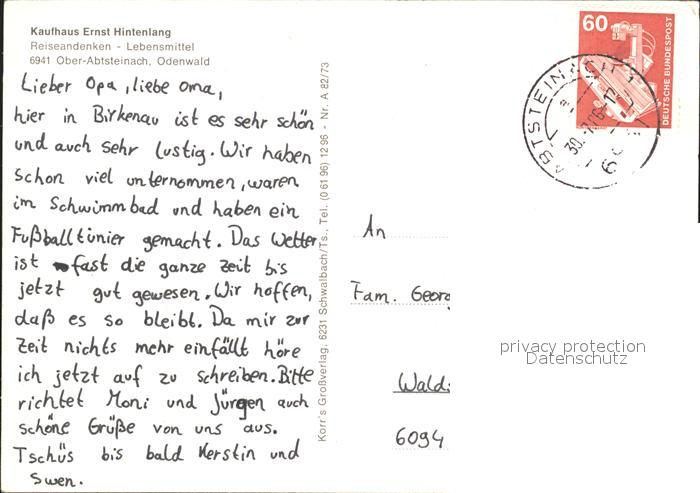 Kaufhaus Ernst Hintenlang
Reiseandenken - Lebensmittel
6941 Ober-Abtsteinach, Odenwald
Lieber Opa, liebe Oma,
hier in Birkenau ist es sehr schön
und auch sehr lustig. Wir haben
schon viel unternommen, waren
im Schwimmbad und haben ein
Fußballtunier gemacht. Das Wetter
ist fast die ganze Zeit bis
jetzt gut gewesen. Wir hoffen,
daß es so bleibt. Da mir zur
Zeit nichts mehr einfällt höre
ich jetzt auf zu schreiben. Bitte
richtet Moni und Jürgen auch
schöne Grüße von uns aus.
Tschüs bis bald Kerstin und
Swen.
Korr's Großverlag, 6231 Schwalbach/Ts., Tel. (0 61 96) 12 96 - Nr. A 82/73
60
DEUTSCHE BUNDESPOST
ABTSTEINACH
An
Fam. Georg
Wald
6094
privacy protection
Datenschutz